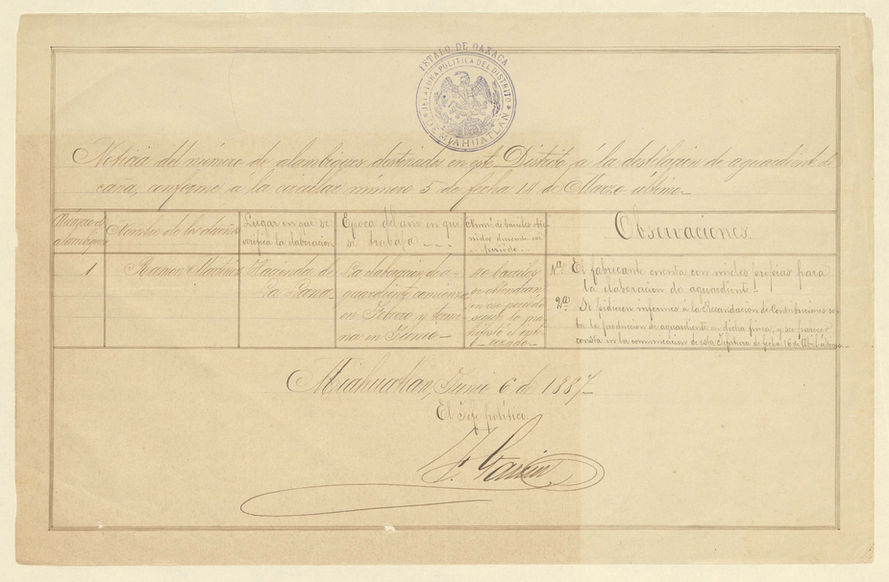 ESTADO DE OAXACA
JEFATURA POLITICA DEL DISTRITO
DE MIAHUATLAN
Noticia del número de alambiques destinados en este Distrito, á la destilacion de aguardiente de
caña, conforme a la circular número 5 de fecha 14 de Marzo último.
Número de
alambiques
Nombre de los dueños
Lugar en que se
verifica la elaboracion
Epoca del año en que
se trabaja
Núm. de barriles obte
nidos durante ese
periodo.
Observaciones.
1
Ramon Martinez
Hacienda de
La Lana
La elaboracion de a-
guardiente comienza
en Febrero y termi
na en Junio
40 barriles
se obtendran
en ese periodo
segun lo ma
nifesto el
1ª El fabricante cuenta con mieles propias para
la elaboracion de aguardiente.
2ª Se pidieron informes á la Recaudacion de Contribuciones so-
bre la produccion de aguardiente en dicha finca, y su
consta en la comunicacion de esta Jefatura de fecha 16 de Abril último
Miahuatlan, Junio 6 de 1887
El Jefe político.